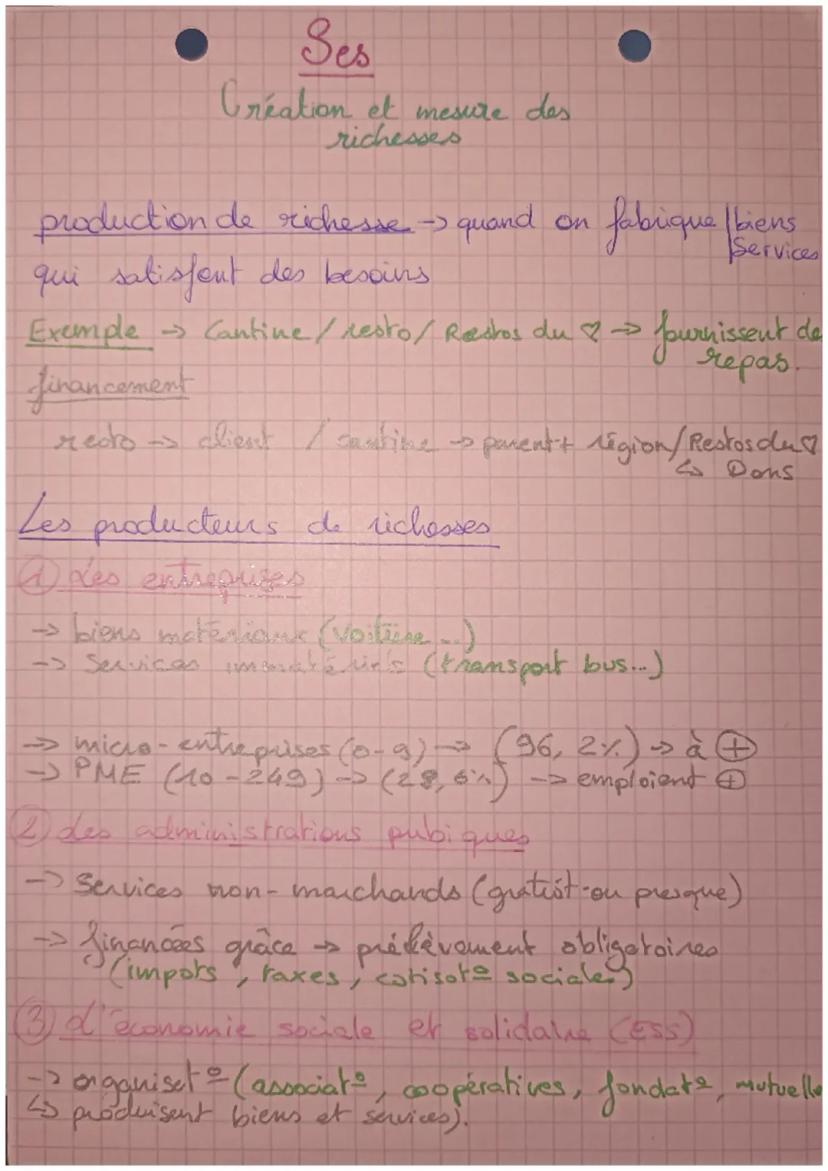 Ses
Création et mesure des
richesses
production de richesse -> quand on fabrique | biens
| Services
qui satisfont des besoins
Exemple -> Cantine / resto / Restos du ♡ -> fournissent de
repas.
financement
resto -> client / cantine -> parent + région / Restos du ♡
↳ Dons
Les producteurs de richesses
① Les entreprises
-> biens matériaux (voiture ...)
-> Services immatériels (transport bus...)
-> micro-entreprises (0-9) -> (96, 2%) -> à ⊕
-> PME (10 - 249) -> (28, 6%) -> emploient ⊕
② des administrations pubiques
-> Services non-marchands (gratuit ou presque)
-> financées grâce -> prélèvement obligatoires
(impots, taxes, cotisat° sociales)
③ L'économie sociale et solidaire (ESS)
-> organisat° (associat°, coopératives, fondat°, mutuelle
↳ produisent biens et services).